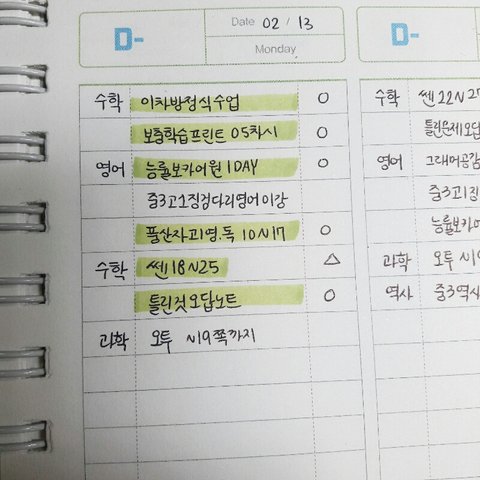 D-
Date 02 / 13
Monday
수학 이차방정식 수업 O
보충학습프린트 05차시 O
영어 능률보카어원 1DAY O
중3고1징검다리영어 이강
풀산자고1영.독 10~17 O
수학 쎈 18~25 △
틀린것 오답노트 O
과학 오투 ~19쪽까지
D-
수학 쎈 22~27
틀린문제 오답
영어
중3고1징
능률보카어
과학 오투 ~19
역사 중3역사